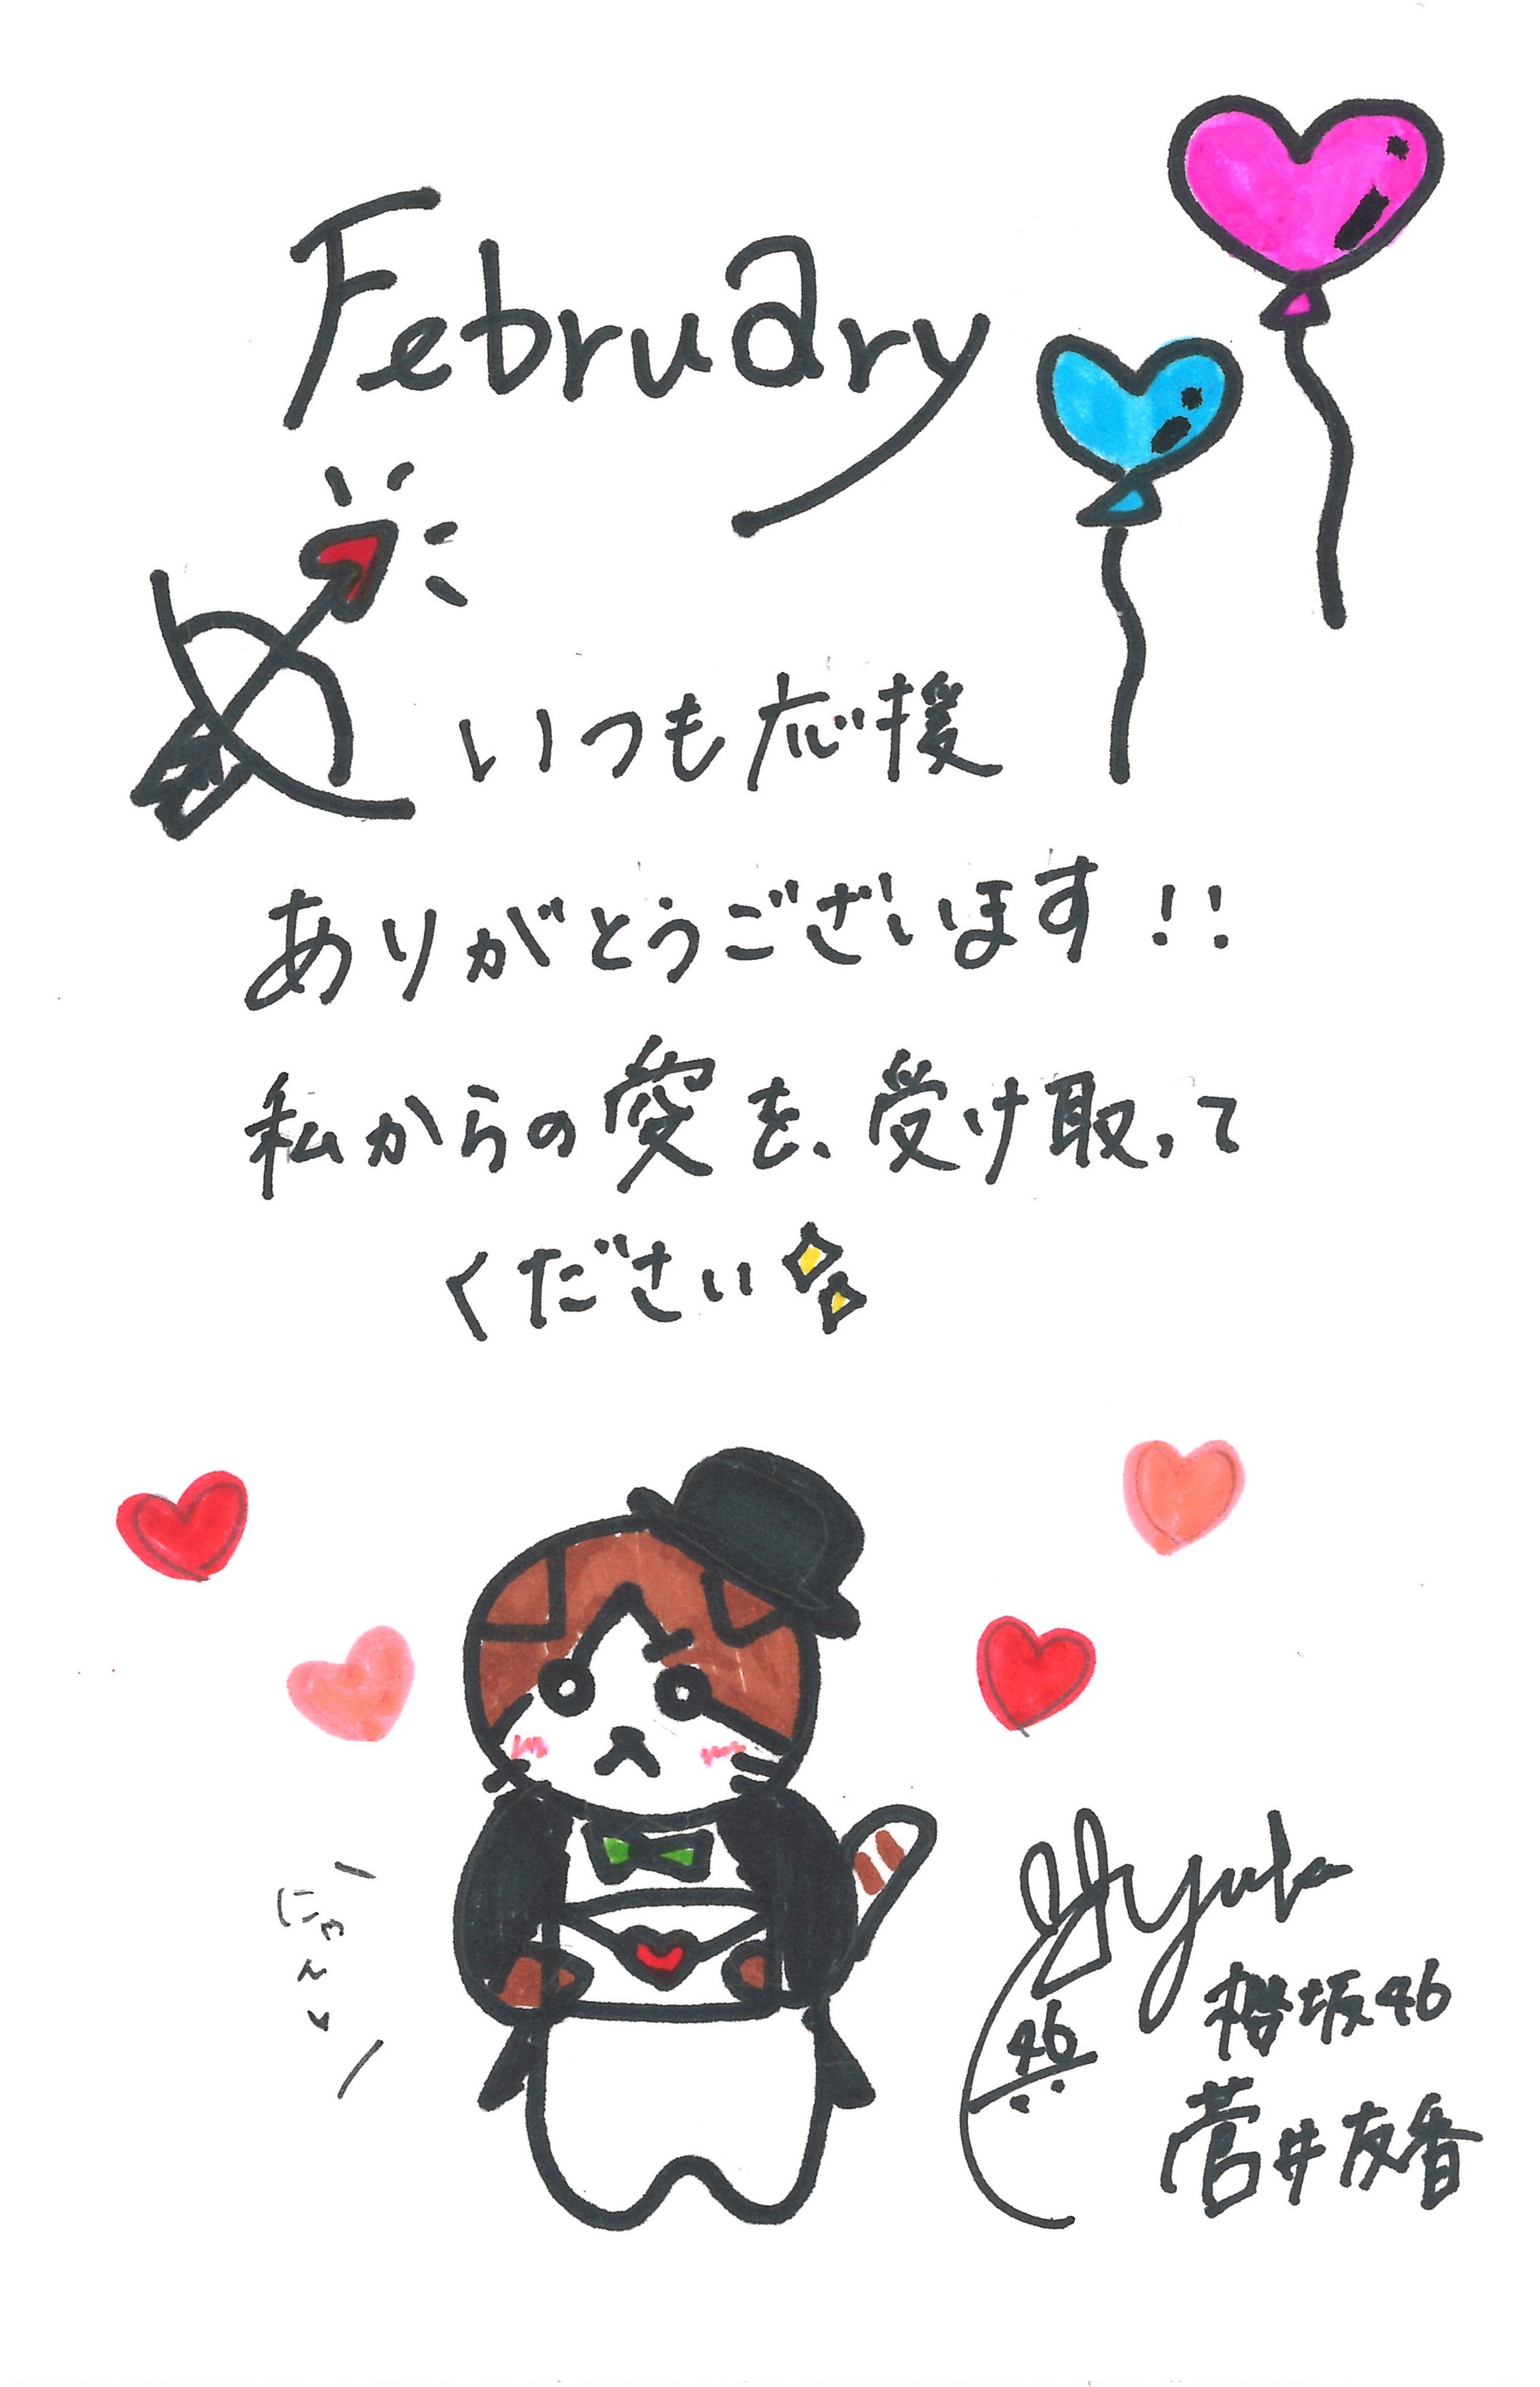 February
いつも応援
ありがとうございます!!
私からの愛を、受け取って
ください
にゃ〜
Yuka
46
櫻坂46
菅井友香